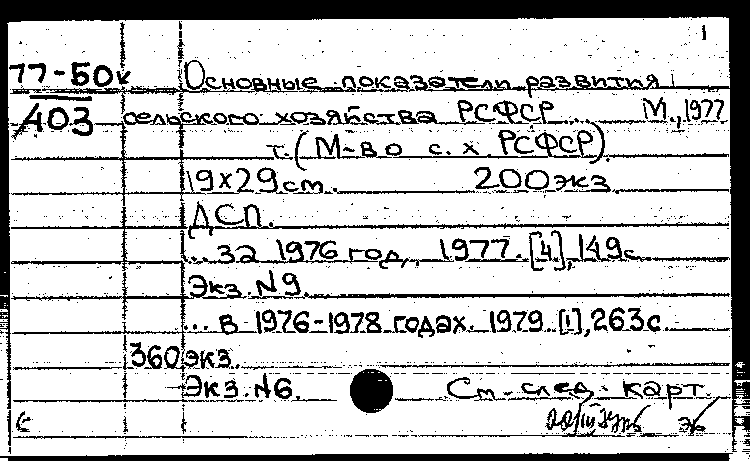 1
77-50к Основные показатели развития
403 сельского хозяйства РСФСР... М., 1977
т. (М-во с. х. РСФСР).
19x29 см. 200 экз.
ДСП.
... за 1976 год,. 1977. [4], 149 с.
Экз. N9.
... в 1976-1978 годах. 1979. [1], 263 с.
360 экз.
Экз. N6. См. след. карт.